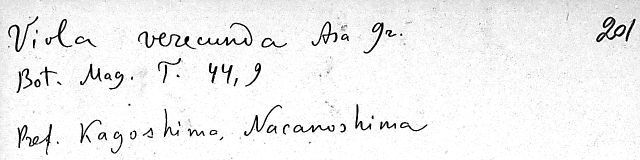 Viola verecunda Asa Gr. 201
Bot. Mag. T. 44, 9
Pref. Kagoshima, Nacanoshima